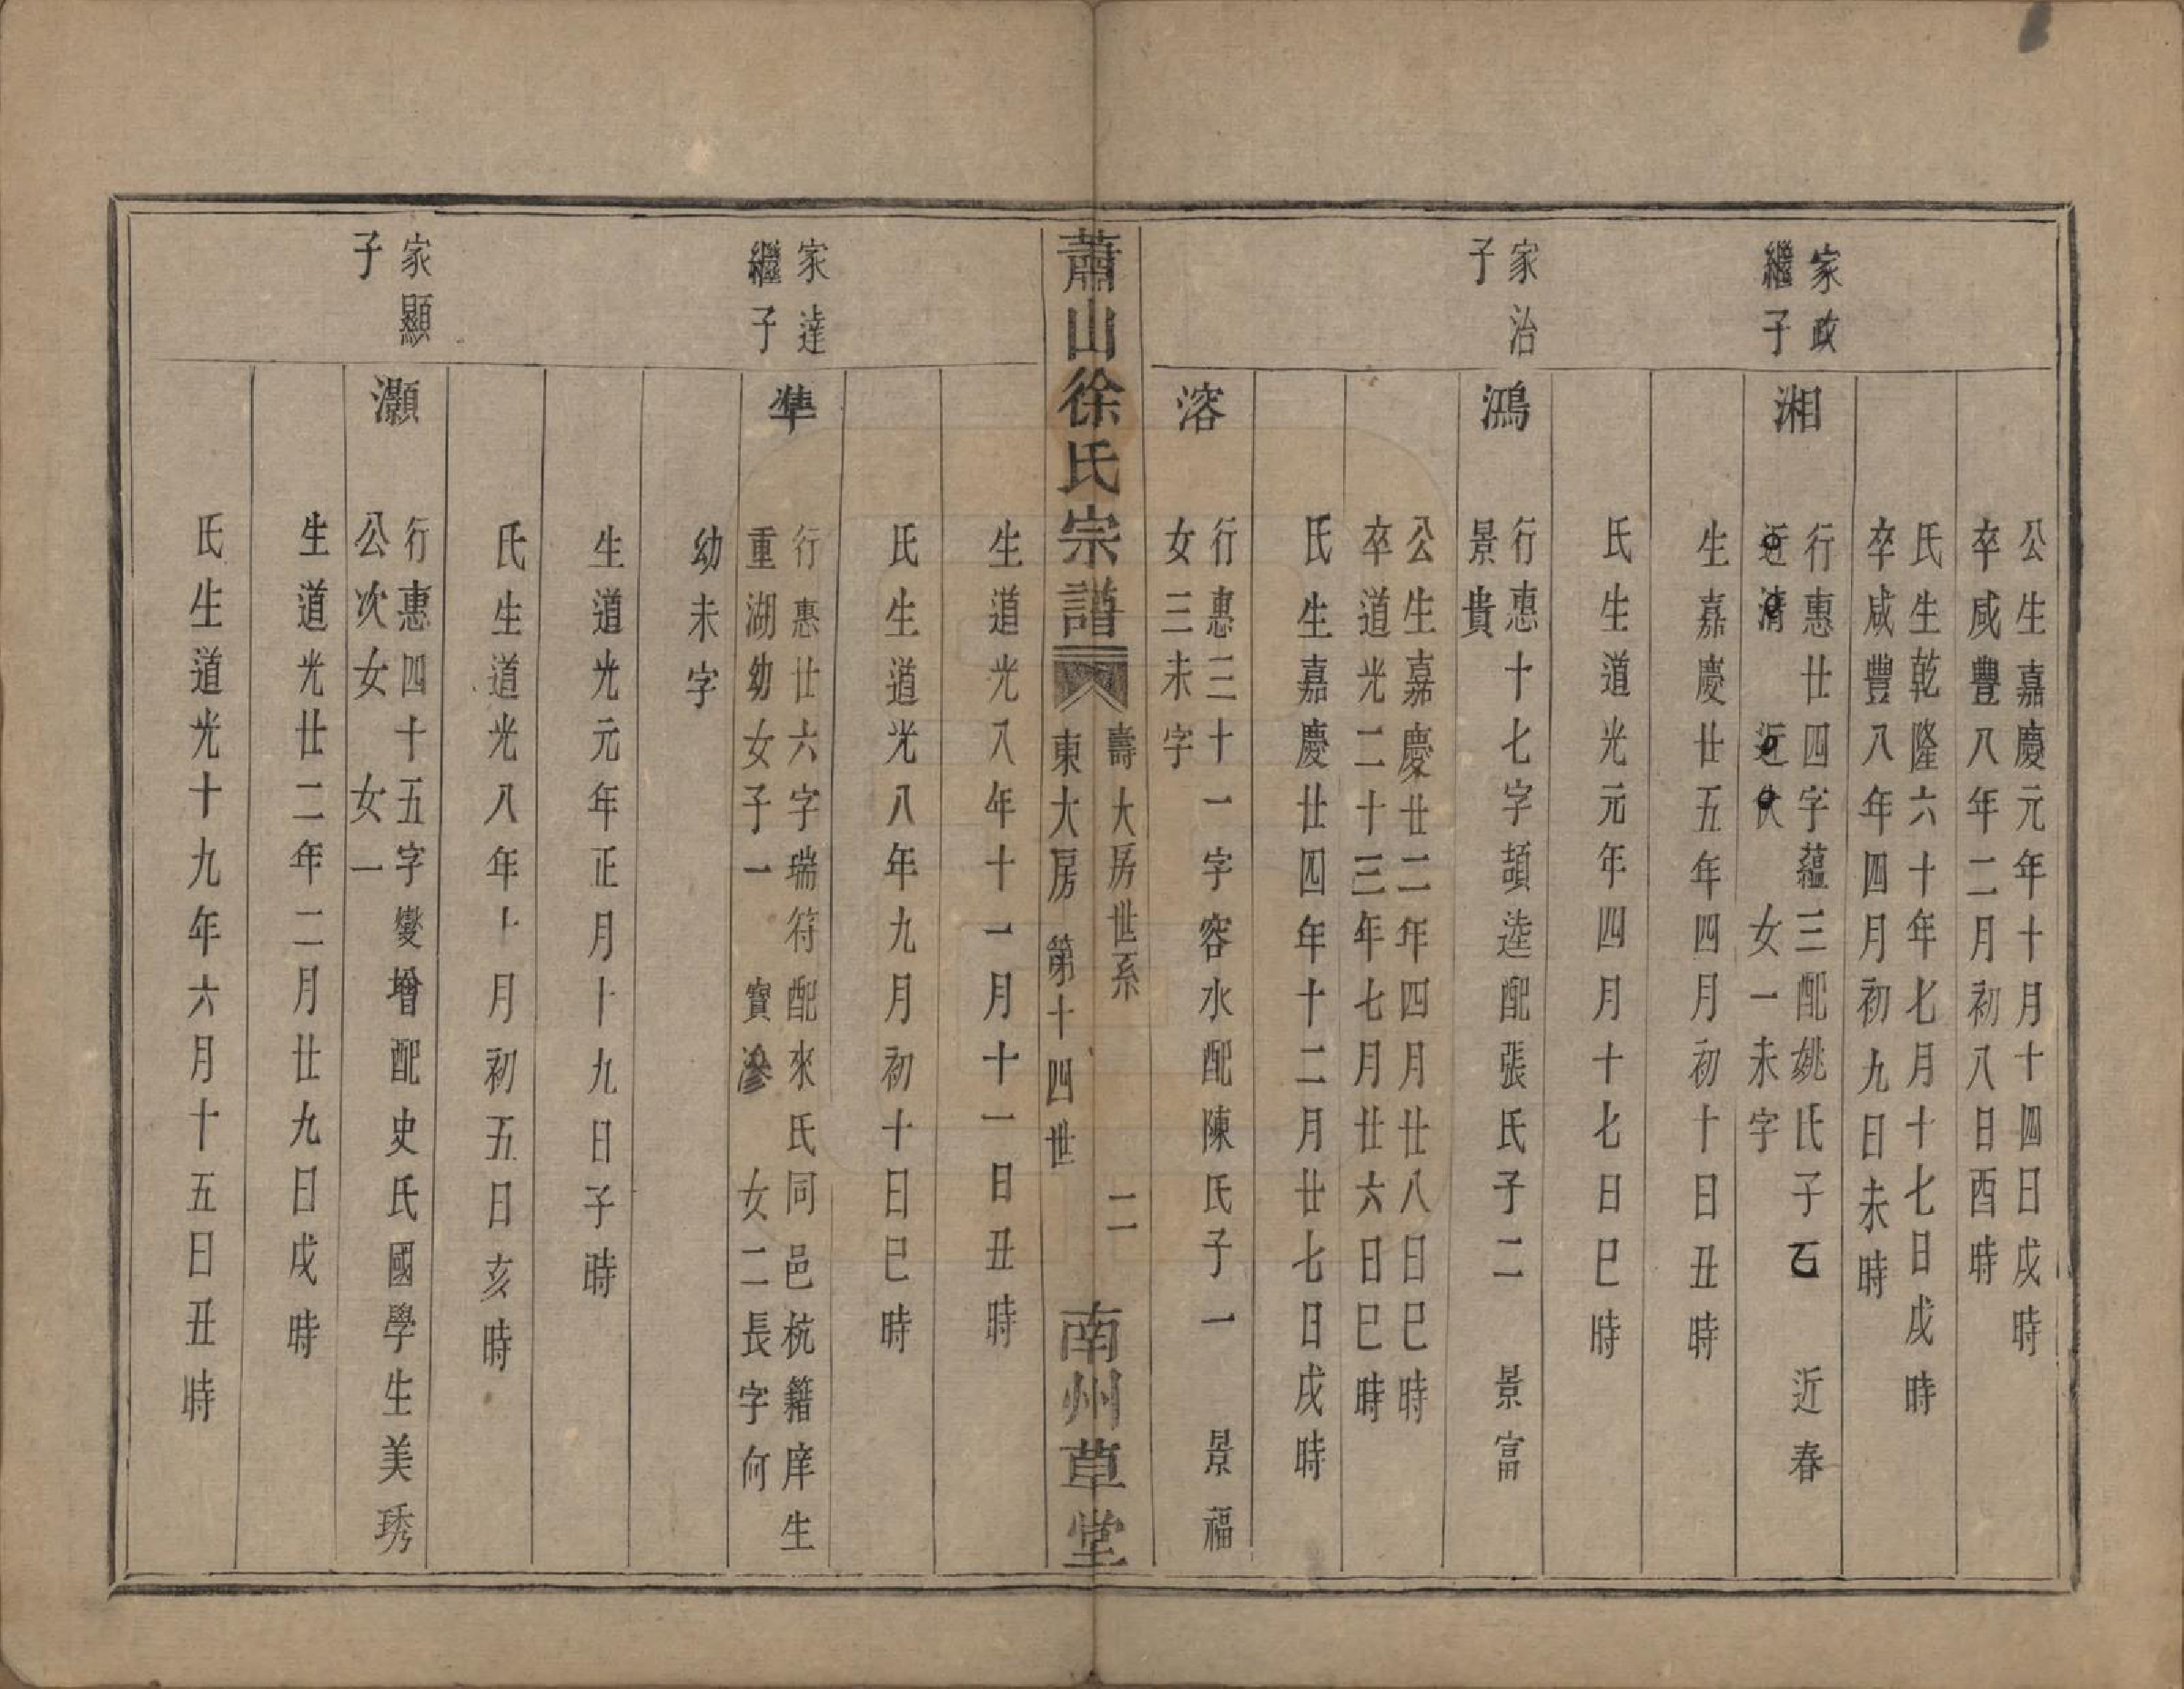 公生嘉慶元年十月十四日戌時
卒咸豐八年二月初八日酉時
氏生乾隆六十年七月十七日戌時
卒咸豐八年四月初九日未時
家政
繼子
湘
行惠廿四字蘊三配姚氏子 近春
近清 近 女一未字
生嘉慶廿五年四月初十日丑時
氏生道光元年四月十七日巳時
家治
子
鴻
行惠十七字頡逵配張氏子二 景富
景貴
公生嘉慶廿二年四月廿八日巳時
卒道光二十三年七月廿六日巳時
氏生嘉慶廿四年十二月廿七日戌時
溶
行惠三十一字容水配陳氏子一 景福
女三未字
蕭山徐氏宗譜
壽大房世系 二
東大房 第十四世
南州草堂
生道光八年十一月十一日丑時
氏生道光八年九月初十日巳時
家達
繼子
準
行惠廿六字瑞符配來氏同邑杭籍庠生
重湖幼女子一 寶滲 女二長字何
幼未字
生道光元年正月十九日子時
氏生道光八年十月初五日亥時
家顯
子
灝
行惠四十五字燮增配史氏國學生美琇
公次女 女一
生道光廿二年二月廿九日戌時
氏生道光十九年六月十五日丑時